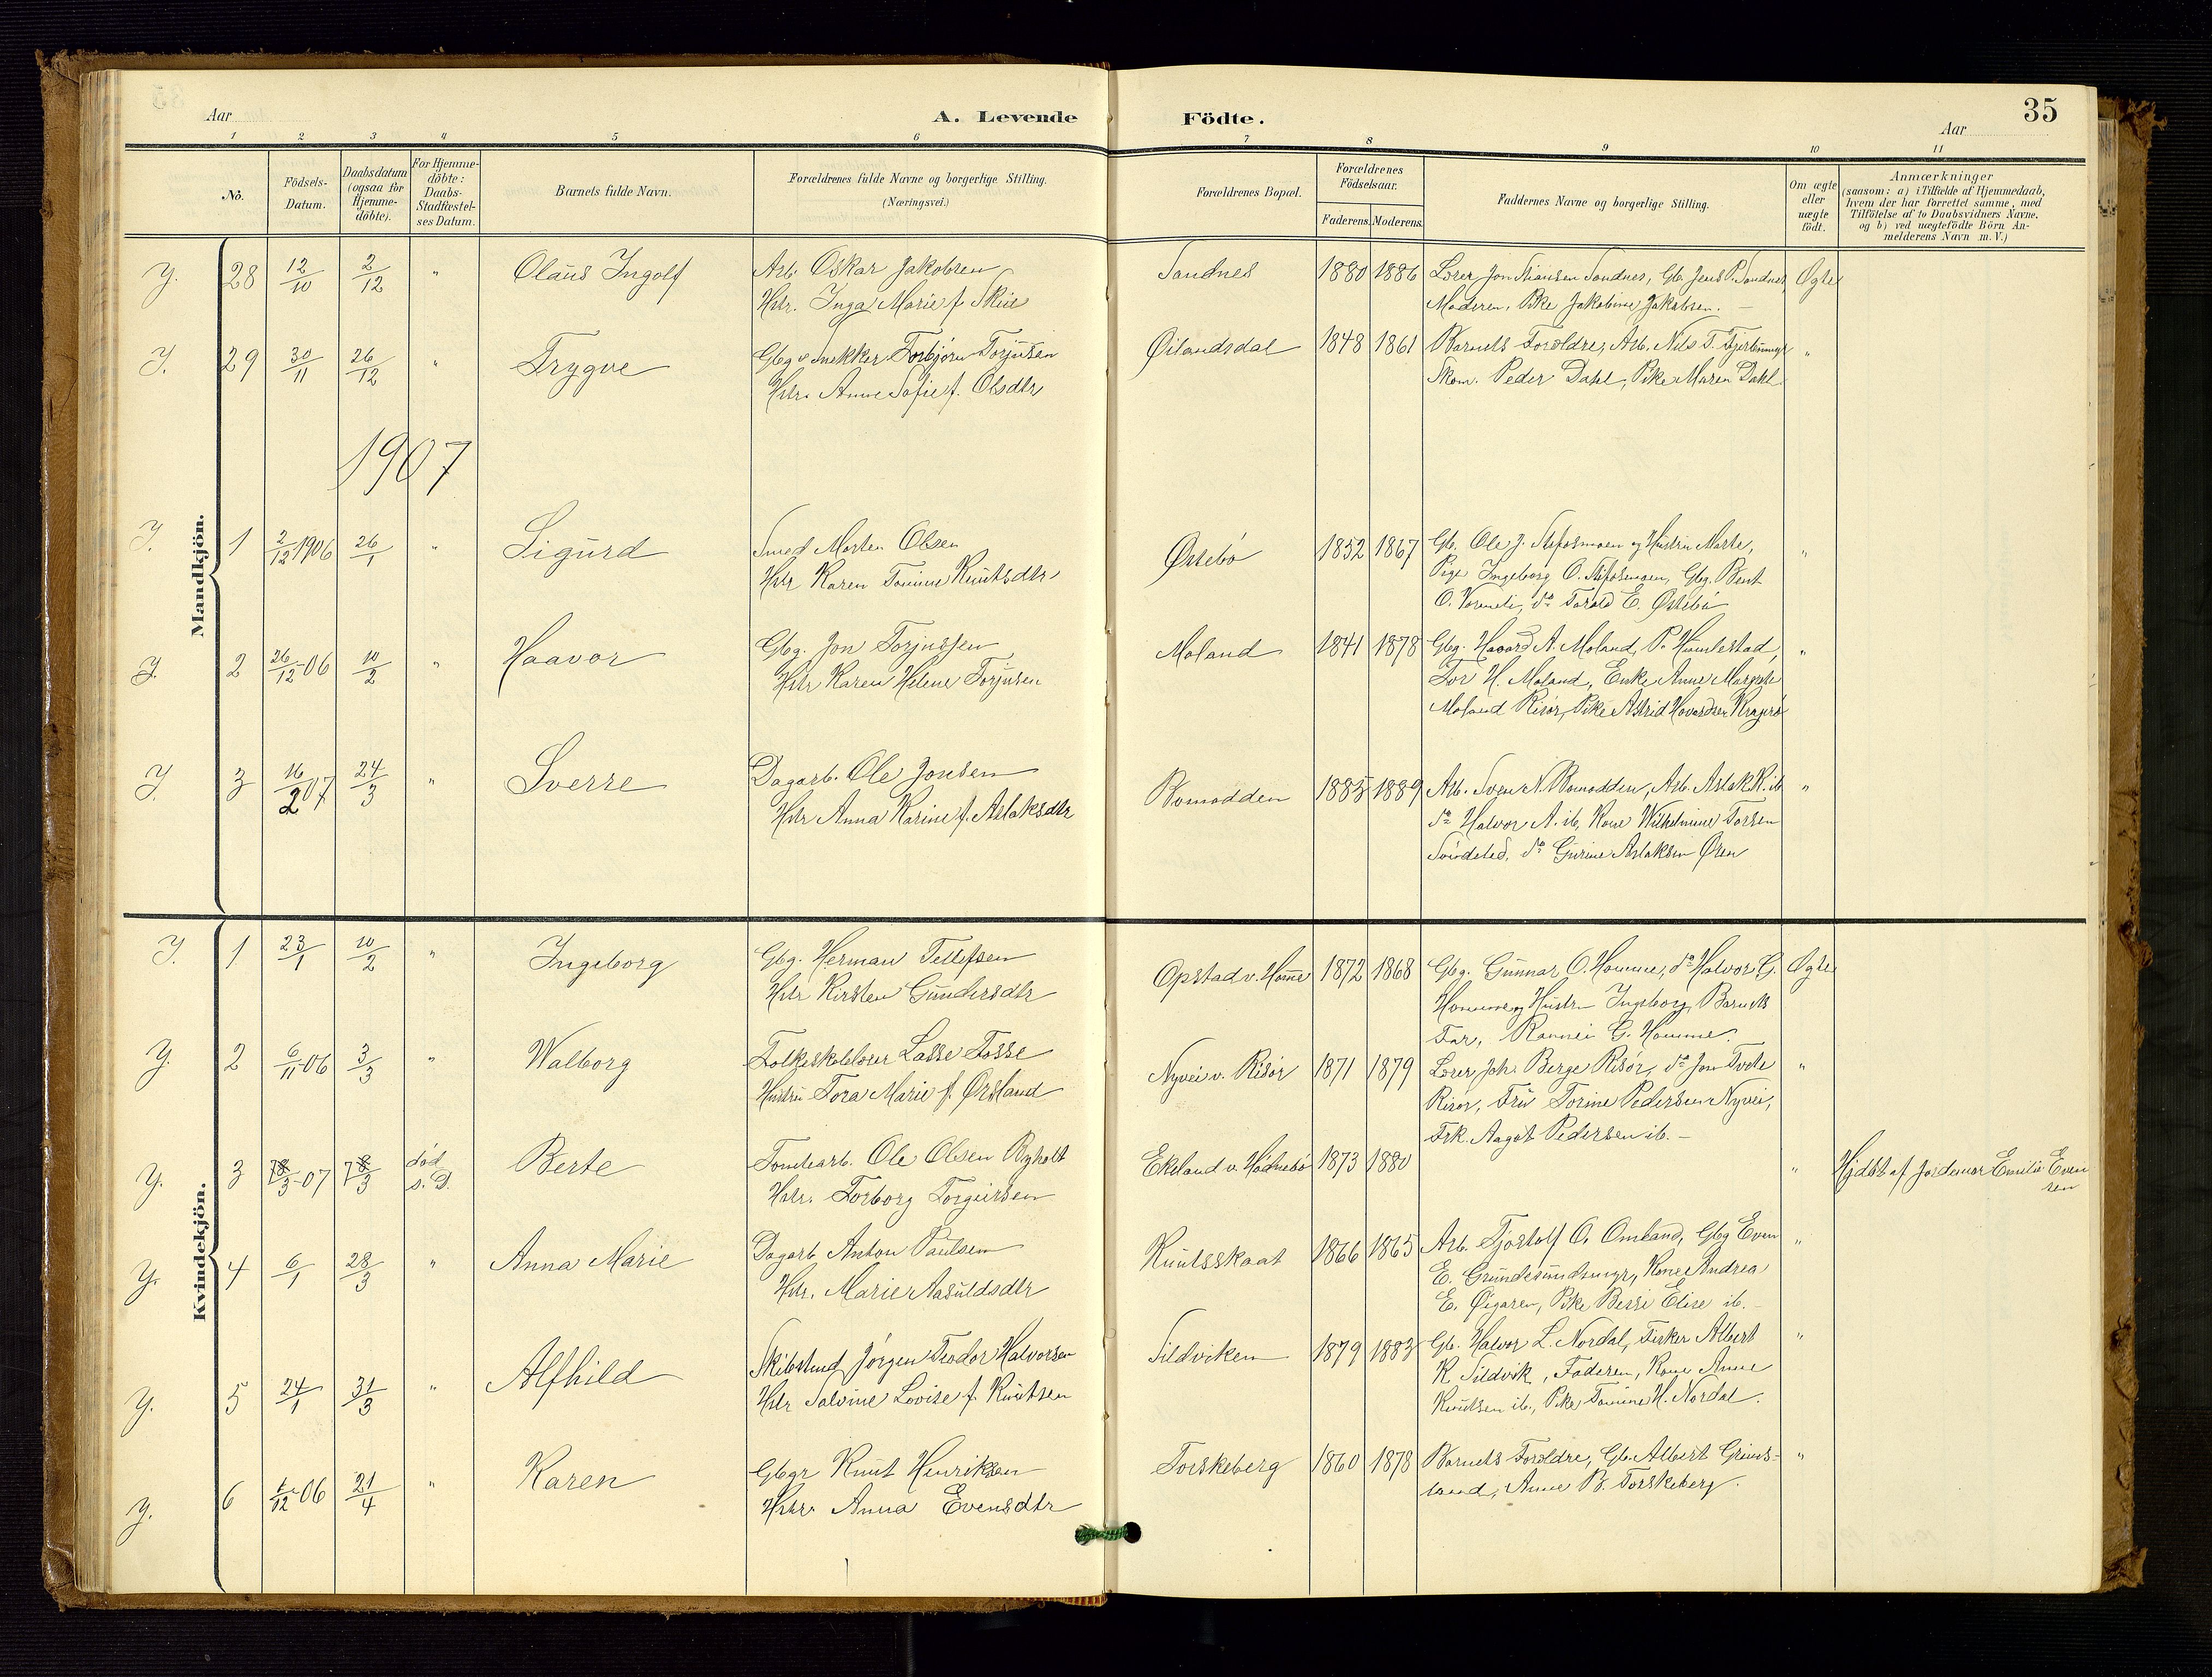 35
Aar
A. Levende Födte.
Aar
1 2 3 4 5 6 7 8 9 10 11
No.
Födsels-Datum.
Daabsdatum (ogsaa for Hjemme-döbte).
For Hjemme-döbte: Daabs-Stadfæstel-ses Datum.
Barnets fulde Navn.
Forældrenes fulde Navne og borgerlige Stilling.
(Næringsvei.)
Forældrenes Bopæl.
Forældrenes Födselsaar.
Faderens. Moderens.
Faddernes Navne og borgerlige Stilling.
Om ægte eller uægte födt.
Anmærkninger
(saasom: a) i Tilfælde af Hjemmedaab,
hvem der har forrettet samme, med
Tilföielse af to Daabsvidners Navne.
og b) ved uægtefödte Börn An-
melderens Navn m. V.)
Mandkjön.
Y. 28 12/10 2/12 " Olaus Ingolf
Arb. Oskar Jakobsen
Hstr. Inga Marie f. Skie
Sandnes 1880 1886
Lærer Jon Stiansen Sandnes, Gb. Jens P. Sandnes
Moderen, Pike Jakobine Jakobsen. —
Ægte
Y. 29 30/11 26/12 " Trygve
Gbg. & Snekker Torbjørn Torjusen
Hstr. Anne Sofie f. Olsdtr
Øilandsdal 1848 1861
Barnets Foreldre, Arb. Nils T.
Skom. Peder Dahl, Pike Maren Dahl.
"
1907
Y. 1 2/12 1906 26/1 " Sigurd
Smed Morten Olsen
Hstr Karen Tomine Knutsdtr
Østebø 1852 1867
Gb. Ole J. og Hustru Marte,
Pige Ingeborg O. Gbg. Bent
O. Vormeli, do Tarald E. Østebø
"
Y. 2 26/12-06 10/2 " Haavor
Gbg. Jon Torjussen
Hstr Karen Helene Torjusen
Moland 1841 1878
Gbg. Havard A. Moland, P. Humlestad,
Tor H. Moland, Enke Anne Margrete
Moland Risør, Pike Astrid Havardsen Kragerø
"
Y. 3 16/2 07 24/3 " Sverre
Dagarb. Ole Jonsen
Hstr Anna Karine f. Aslaksdtr
Bomodden 1885 1889
Arb. Sven N. Bomodden, Arb. Aslak K. ib.
do Halvor A. ib, Kone Wilhelmine Torsen
Søndeled, do Gurine Aslaksen Øsen
"
Kvindekjön.
Y. 1 23/1 10/2 " Ingeborg
Gbg. Herman Tellefsen
Hstr Kirsten Gundersdtr
Opstad v. Homme 1872 1868
Gbg. Gunnar O. Homme, do Halvor G.
Homme og Hustr. Ingeborg, Barnets
Far, Rannei G. Homme.
Ægte
Y. 2 6/11-06 3/3 " Walborg
Folkeskolelærer Lasse Fosse
Hustru Tora Marie f. Ørsland
Nyvei v. Risør 1871 1879
Lærer Joh. Berge Risør, do Jon Tvete
Risør, Fru Torine Pedersen Nyvei,
Frk. Aagot Pedersen ib. —
"
Y. 3 18/3-07 18/3 død s. D. Berte
Tomtearb. Ole Olsen Ryholt
Hstr. Torborg Torgeirsen
Ekeland v. Hødnebø 1873 1880
" Hjdbt af Jordemor Emilie Even
sen
Y. 4 6/1 28/3 " Anna Marie
Dagarb Anton Paulsen
Hstr. Marie Aasuldsdtr
Knutsskaat 1866 1865
Arb. Tjostolf O. Omland, Gbg Even
E. Grundesundmyr, Kone Andrea
E. Øigaren, Pike Berri Elise ib. —
"
Y. 5 24/1 31/3 " Alfhild
Skibstmd Jørgen Teodor Halvorsen
Hstr Salvine Lovise f. Knutsen
Sildviken 1879 1883
Gb. Halvor L. Nordal, Fisker Albert
K. Sildvik, Faderen, Kone Anne
Knutsen ib., Pike Tomine H. Nordal.
"
Y. 6 1/12-06 21/4 " Karen
Gbgr Knut Henriksen
Hstr. Anna Evensdtr
Torskeberg 1860 1878
Barnets Foreldre, Gb. Albert Grims-
land, Anne B. Torskeberg.
"